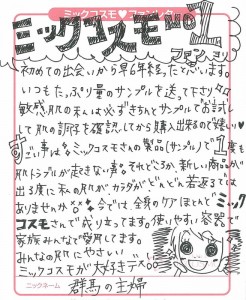 ミックコスモ♥ファンレター
ミックコスモNo1
ファンより
初めての出会いから早6年経ったでしょうか。
いつもたっぷり量のサンプルを送って下さり
敏感肌の私は必ずきちんとサンプルでお試し
して肌の調子を確認してから購入出来るので嬉しい♥
すごい事はミックコスモさんの製品(サンプル)で1度も
肌トラブルが起きない事。それどころか、新しい商品が
出る度に私の肌が、カラダがどんどん若返っては
ありませんか 今では全身のケアほとんどミック
コスモさんで成り立ってます。使いやすい容器で
家族みんなで愛用してます。
みんなの肌にやさしい
ミックコスモが大好きデス。
ニックネーム 群馬の主婦